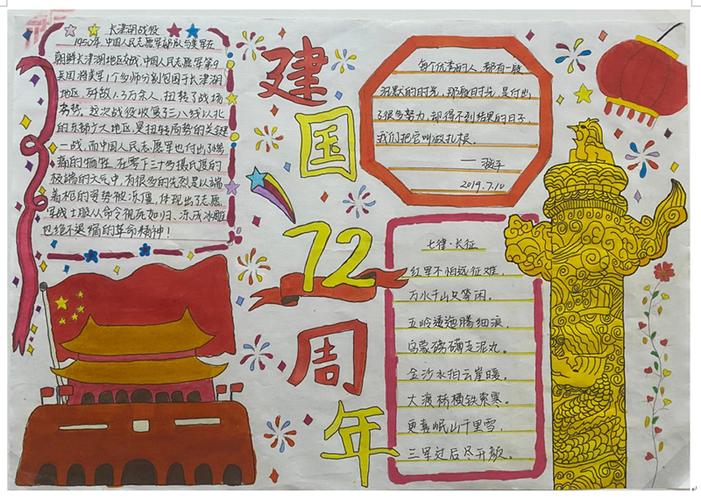 长津湖战役
1950年,中国人民志愿军部队与美军在
朝鲜长津湖地区交战,中国人民志愿军第9
兵团将美军1个多师分割包围于长津湖
地区,歼敌1.3万余人,扭转了战场
态势,这次战役收复了三八线以北
的东部广大地区,是扭转局势的关键
一战,而中国人民志愿军也付出了
痛的牺牲,在零下三十多摄氏度的
极端的天气中,有很多的先烈是以端
着枪的姿势被冻僵,体现出了志愿
军战士服从命令视死如归,冻成冰雕
也绝不退缩的革命精神!
建
国
72
周
年
每个优秀的人,都有一段
沉默的时光,那段时光,是付出
了很多努力,却得不到结果的日子,
我们把它叫做扎根。
2019.7.10
七律·长征
红军不怕远征难,
万水千山只等闲。
五岭逶迤腾细浪,
乌蒙磅礴走泥丸。
金沙水拍云崖暖,
大渡桥横铁索寒。
更喜岷山千里雪,
三军过后尽开颜。